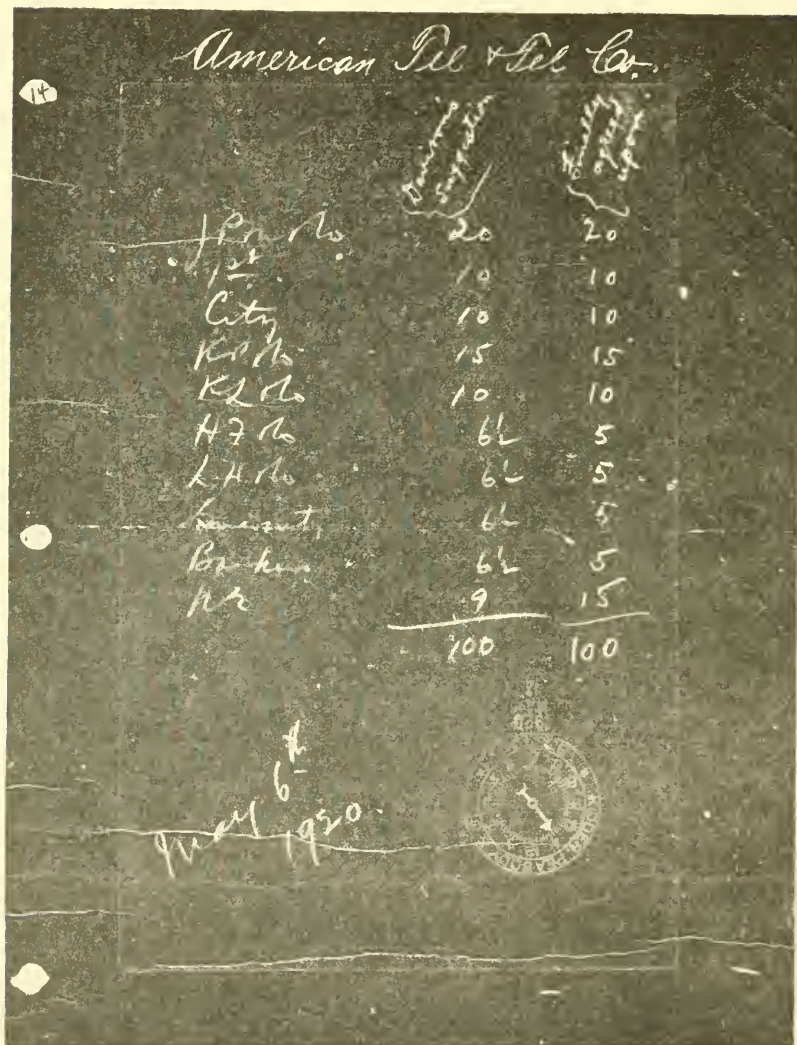 American Tel & Tel Co.
14
Davison's suggestion
Finally agreed upon
J P M & Co 20 20
1st 10 10
City 10 10
K P & Co 15 15
K L & Co 10 10
H F & Co 6½ 5
L H & Co 6½ 5
Guaranty 6½ 5
Bankers 6½ 5
9 15
100 100
May 6th
1920